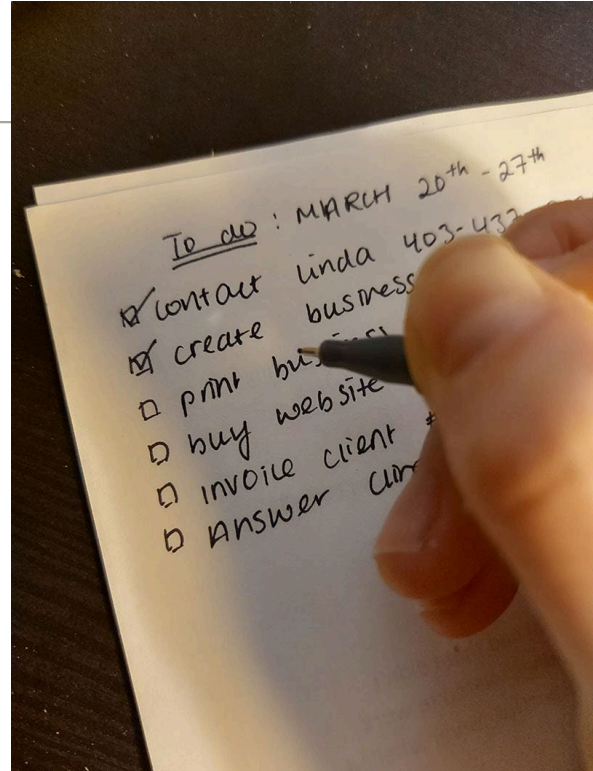 To do : MARCH 20th - 27th
contact Linda 403-432
create business
print business
buy website
invoice client #
Answer